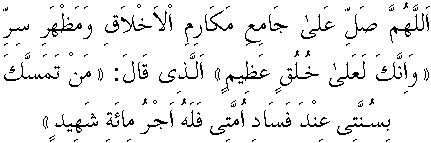 اَللَّهُمَّ صَلِّ عَلٰى جَامِعِ مَكَارِمِ اْلاَخْلاَقِ وَمَظْهَرِ سِرِّ
﴿ وَاِنَّكَ لَعَلٰى خُلُقٍ عَظِيمٍ ﴾ اَلَّذِى قَالَ: ﴿ مَنْ تَمَسَّكَ
بِسُنَّتِى عِنْدَ فَسَادِ اُمَّتِى فَلَهُ اَجْرُ مِائَةِ شَهِيدٍ ﴾